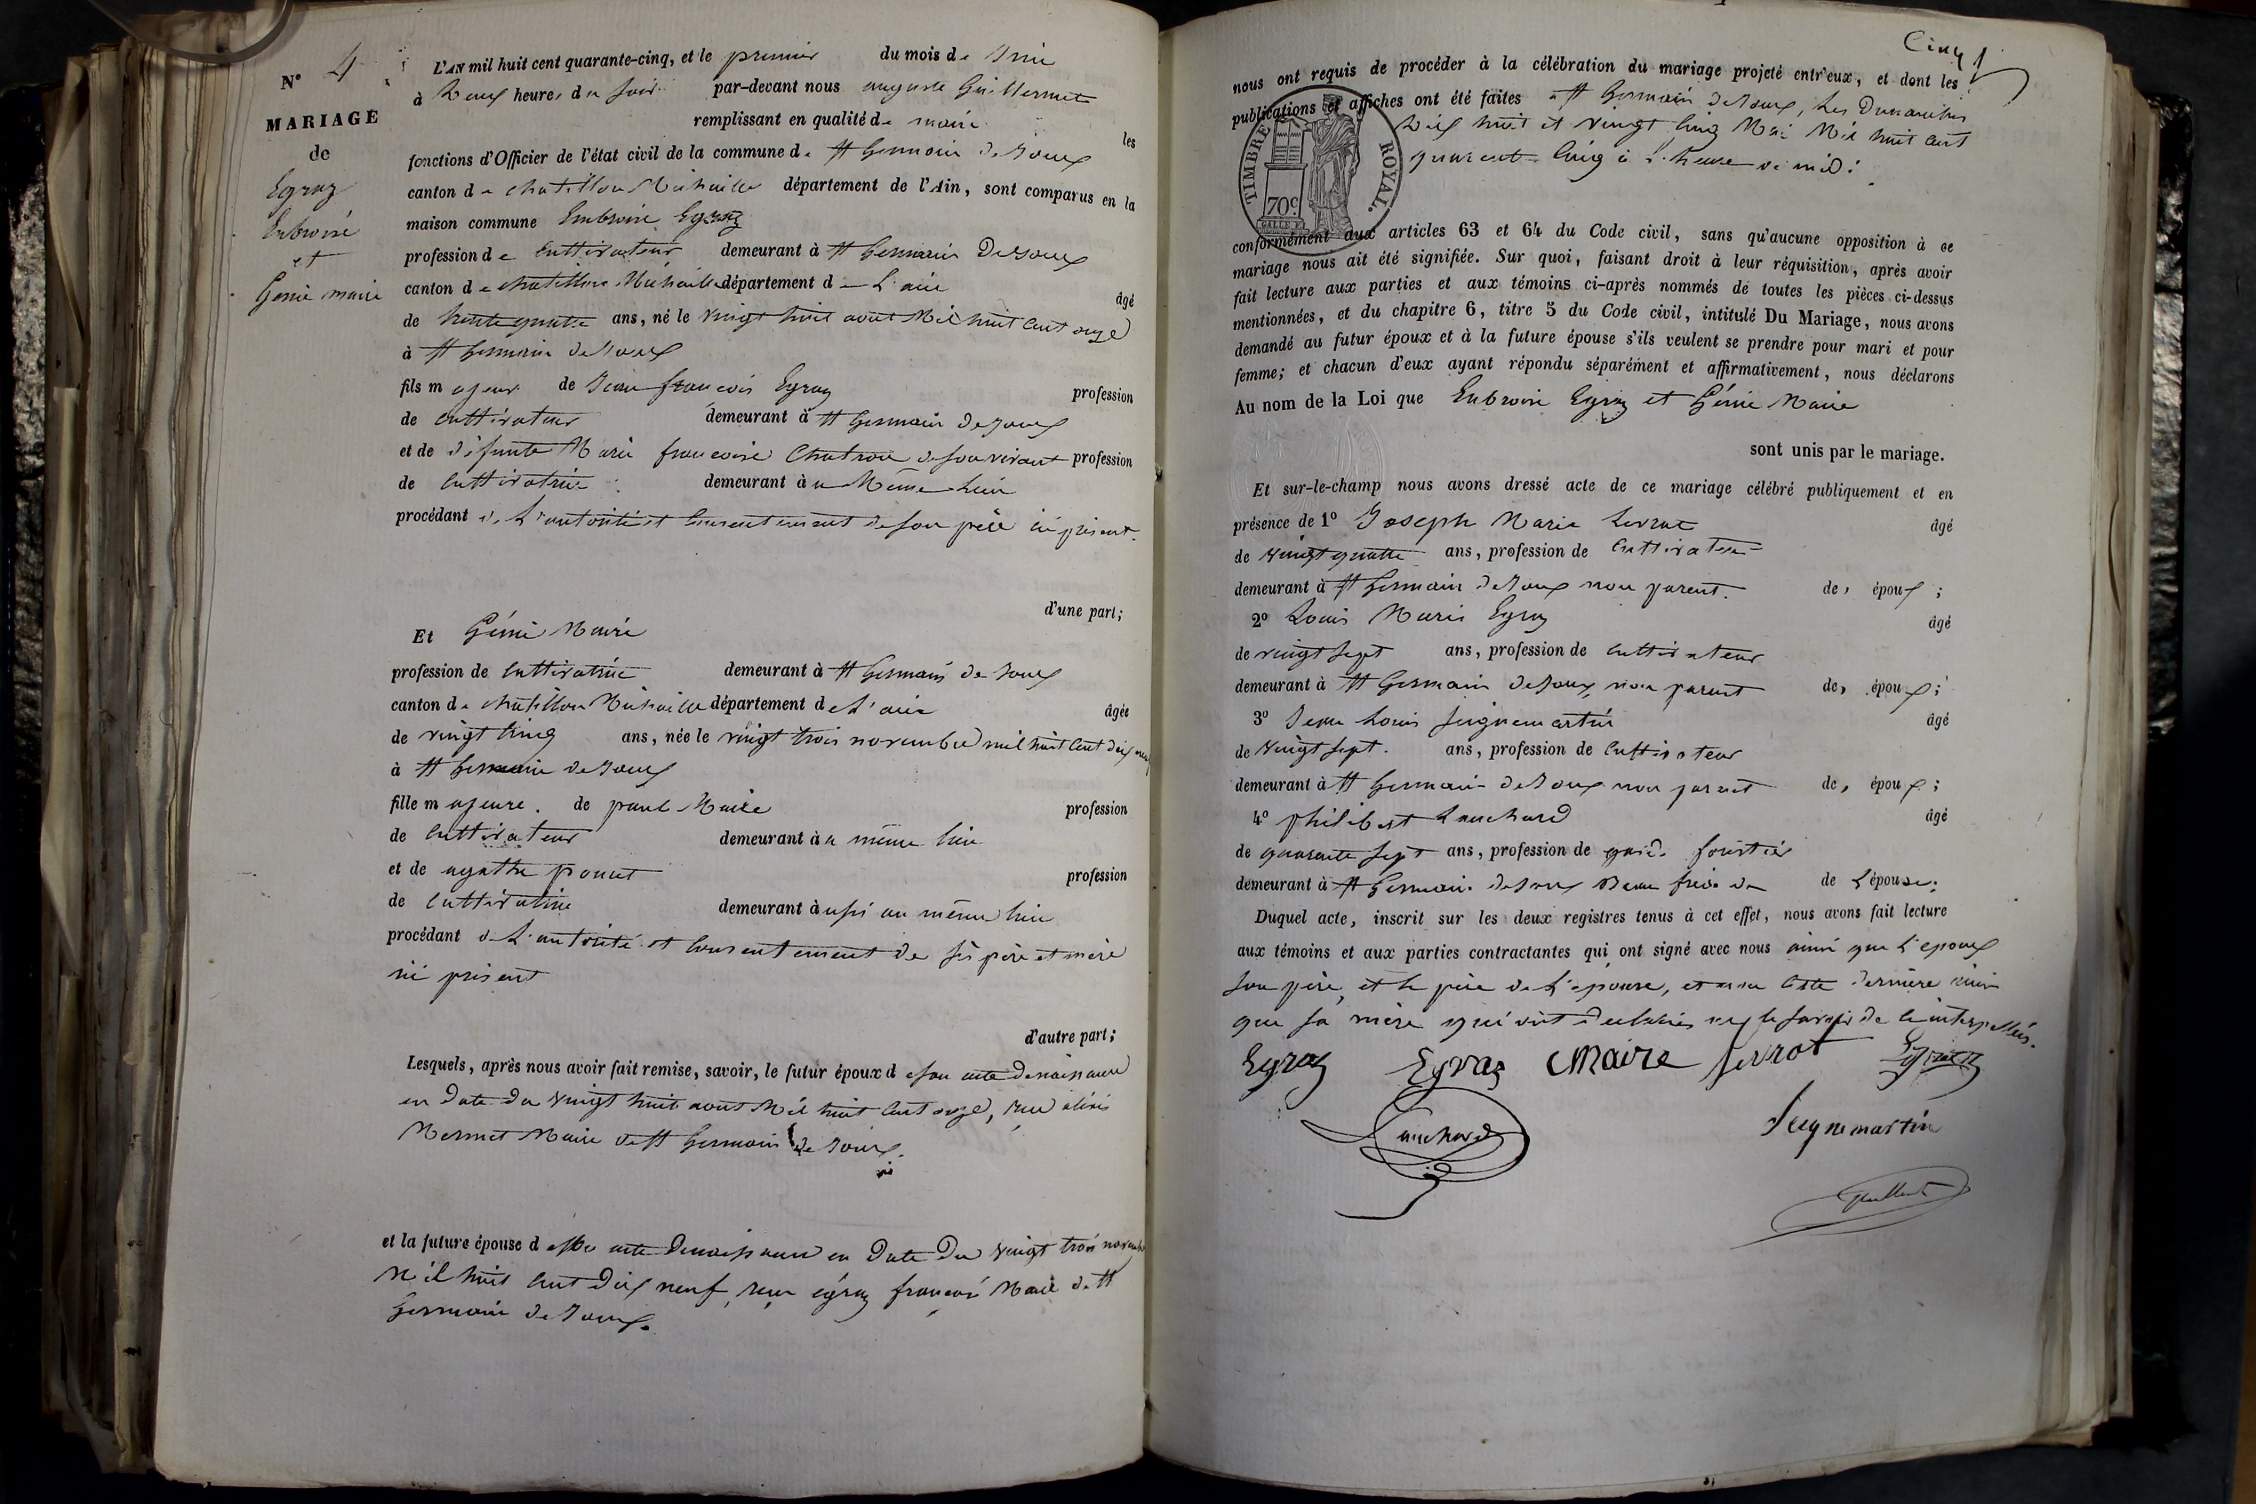 N° 4
MARIAGE
de
Egraz
Enbroise
et
Génie Marie
L'AN mil huit cent quarante-cinq, et le premier du mois de Juin
à Deux heures du soir par-devant nous auguste Guillermet
remplissant en qualité de maire les
fonctions d'Officier de l'état civil de la commune de St Germain de Joux
canton de chatillon Michaille département de l'Ain, sont comparus en la
maison commune Enbroise Egraz
profession de cultivateur demeurant à St Germain De Joux
canton de chatillon Michaille département de L'ain âgé
de trente quatre ans, né le vingt huit aout Mil huit cent onze
à St Germain de Joux
fils majeur de Jean françois Egraz profession
de cultivateur demeurant à St Germain de Joux
et de défunte Marie françoise Chatron de son vivant profession
de cultivatrice demeurant au Même Lieu
procédant de L'autorité et consentement de son père ici présent.
d'une part;
Et Génie Maire
profession de cultivatrice demeurant à St Germain de Joux
canton de chatillon Michaille département de L'ain âgée
de vingt cinq ans, née le vingt trois novembre mil huit cent dix neuf
à St Germain de Joux
fille majeure. de paul Maire profession
de cultivateur demeurant au même lieu
et de agathe poncet profession
de cultivatrice demeurant aussi au même lieu
procédant de L'autorité et consentement de ses père et mère
ici présent
d'autre part;
Lesquels, après nous avoir fait remise, savoir, le futur époux de son acte de naissance
en date du vingt huit aout Mil huit cent onze, reçu alexis
Mermet Maire de St Germain de Joux.
et la future épouse d acte de naissance en Date Du vingt trois novembre
Mil huit cent dix neuf, reçu égraz françois Maire de St
Germain de Joux.
Cinq
nous ont requis de procéder à la célébration du mariage projeté entr'eux, et dont les
publications et affiches ont été faites à St Germain de Joux, Les Dimanches
Dix huit et vingt cinq Mai Mil huit cent
quarante cinq à L'heure de midi.
TIMBRE ROYAL.
70c
conformément aux articles 63 et 64 du Code civil, sans qu'aucune opposition à ce
mariage nous ait été signifiée. Sur quoi, faisant droit à leur réquisition, après avoir
fait lecture aux parties et aux témoins ci-après nommés de toutes les pièces ci-dessus
mentionnées, et du chapitre 6, titre 5 du Code civil, intitulé Du Mariage, nous avons
demandé au futur époux et à la future épouse s'ils veulent se prendre pour mari et pour
femme; et chacun d'eux ayant répondu séparément et affirmativement, nous déclarons
Au nom de la Loi que Enbroise Egraz et Génie Maire
sont unis par le mariage.
Et sur-le-champ nous avons dressé acte de ce mariage célébré publiquement et en
présence de 1° Joseph Marie âgé
de vingt quatre ans, profession de cultivateur
demeurant à St Germain de Joux non parent. des époux;
2° Louis Marie Egraz âgé
de vingt sept ans, profession de cultivateur
demeurant à St Germain de Joux, non parent des époux;
3° Jean Louis Seignemartin âgé
de vingt sept. ans, profession de cultivateur
demeurant à St Germain de Joux non parent des époux;
4° philibert Lanchard âgé
de quarante sept ans, profession de garde forestier
demeurant à St Germain de Joux Beau frère de de L'épouse;
Duquel acte, inscrit sur les deux registres tenus à cet effet, nous avons fait lecture
aux témoins et aux parties contractantes qui ont signé avec nous ainsi que L'epoux
son père, et le père de L'épouse, et non cette dernière ainsi
que sa mère qui ont déclaré ne le savoir de ce interpellés.
Egraz Egraz Maire Egraz
Seignemartin